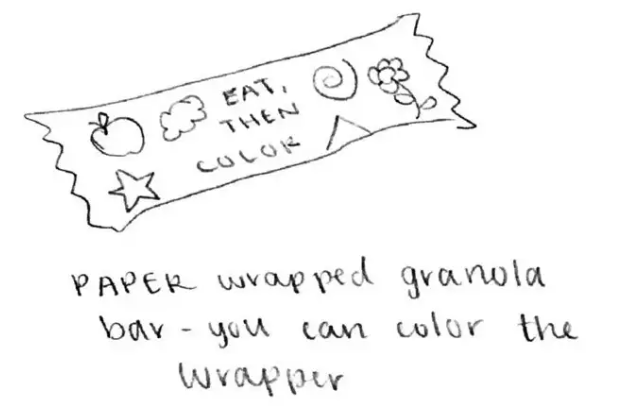 EAT,
THEN
COLOR
PAPER wrapped granola
bar - you can color the
wrapper